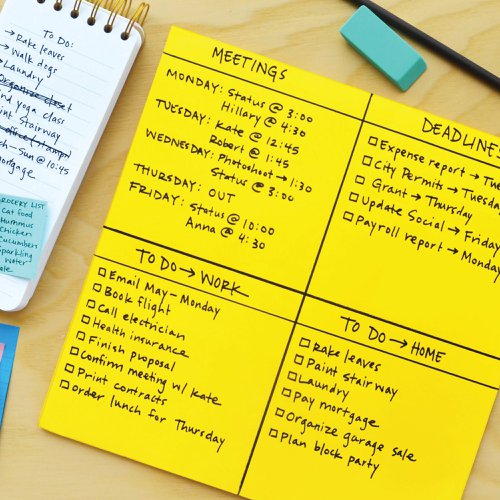 TO DO:
→ Rake leaves
→ Walk dogs
→ Laundry
Organize closet
yoga class
Stairway
Sun @ 10:45
mortgage
GROCERY LIST
Cat food
Hummus
Chicken
Cucumbers
Sparkling
Water
MEETINGS
MONDAY: Status @ 3:00
Hillary @ 4:30
TUESDAY: Kate @ 12:45
Robert @ 1:45
WEDNESDAY: Photoshoot → 1:30
Status @ 3:00
THURSDAY: OUT
FRIDAY: Status @ 10:00
Anna @ 4:30
DEADLINES
Expense report → Tue
City Permits → Tuesda
Grant → Thursday
Update Social → Friday
Payroll report → Monda
TO DO → WORK
Email May - Monday
Book flight
Call electrician
Health insurance
Finish proposal
Confirm meeting w/ Kate
Print contracts
Order lunch for Thursday
TO DO → HOME
Rake leaves
Paint Stairway
Laundry
Pay mortgage
Organize garage sale
Plan block party